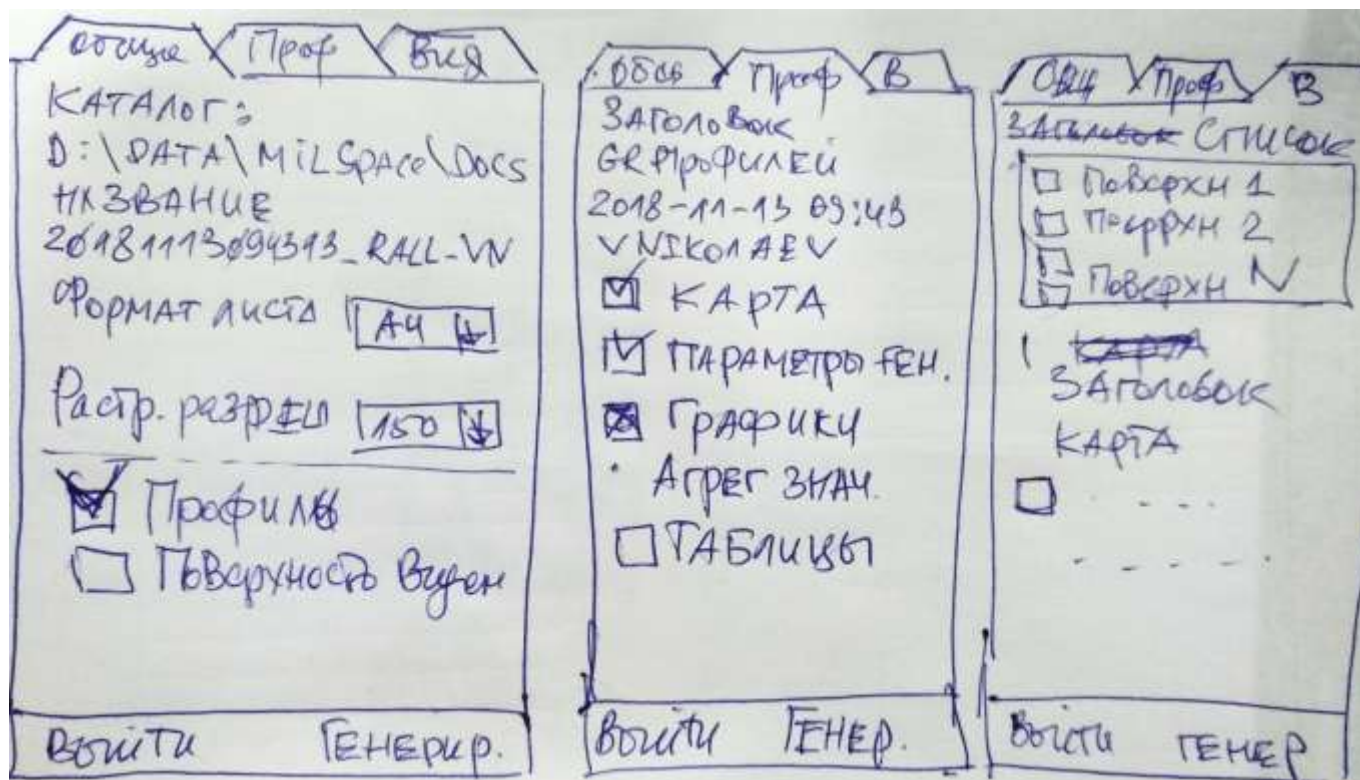 общие Проф Вид
КАТАЛОГ:
D:\DATA\MiLSpAce\Docs
НАЗВАНИЕ
20181113094313_RALL-VN
Формат листа А4
Растр. разреш 150
Профиль
Поверхность виден
Выйти Генерир.
Общ Проф В
ЗАГОЛОВОК
GR Профилей
2018-11-13 09:43
VNIKOлAEV
КАРТА
ПАРАМЕТРЫ ГЕН.
Графики
Агрег знач.
ТАБЛИЦЫ
Выйти ГЕНЕР.
Общ Проф В
ЗАГОЛОВОК СПИСОК
Поверхн 1
Поверхн 2
Поверхн N
КАРТА
ЗАГОЛОВОК
КАРТА
Выйти ГЕНЕР